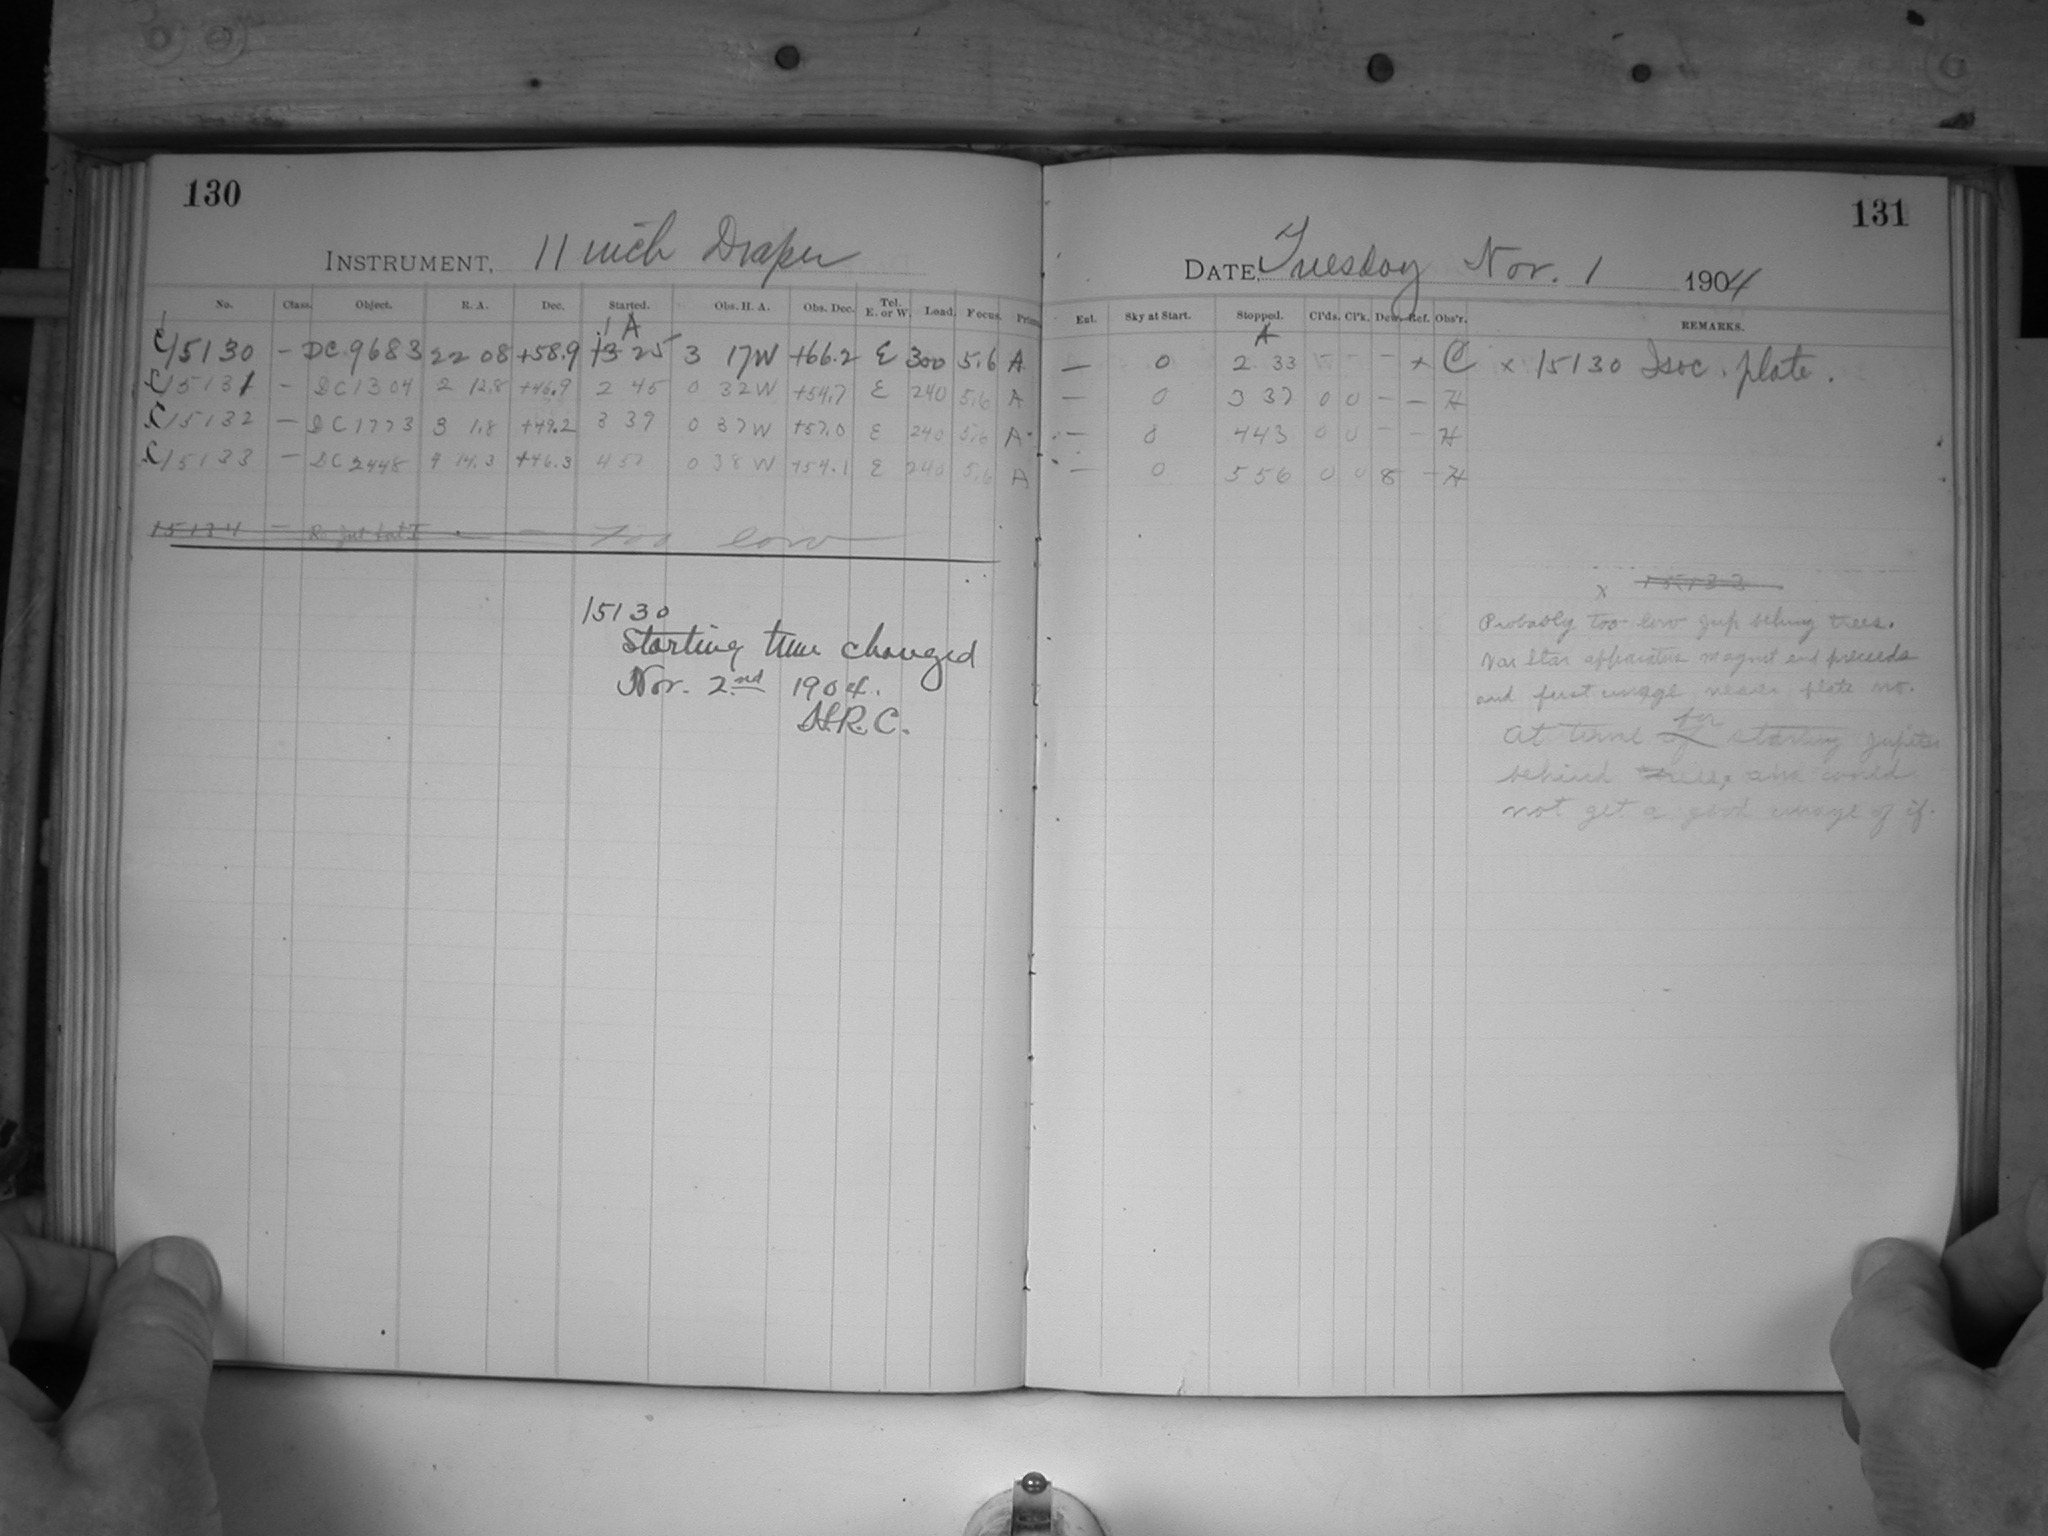 130
INSTRUMENT, 11 inch Draper
No. Class. Object. R. A. Dec. Started. Obs. H. A. Obs. Dec. Tel. E. or W. Load. Focus.
A
C 15130 – DC 9683 22 08 +58.9 25 3 17 W +66.2 E 300 5.6 A
C 15131 – DC 1304 2 12.8 +46.9 2 45 0 32 W +54.7 E 240 5.6 A
C 15132 – DC 1773 3 1.8 +49.2 3 39 0 37 W +57.0 E 240 5.6 A
C 15133 – DC 2448 4 14.3 +46.3 4 0 38 W +54.1 E 240 5.6 A
15134 – Too low
15130
Starting time changed
Nov. 2nd 1904.
131
DATE, Tuesday Nov. 1 1904
Ent. Sky at Start. Stopped. Cl'ds. Cl'k. Dew. Ref. Obs'r. REMARKS.
A
– 0 2 33 – – x C x 15130 Isoc. plate.
– 0 3 37 0 0 – – H
– 0 4 43 0 0 – – H
– 0 5 56 0 0 8 – H
x 15133
Probably too low Jup behing trees.
Var Star apparatus magnet end preceeds
and first image nearer plate no.
At time for starting Jupiter
behind trees, and could
not get a good image of it.